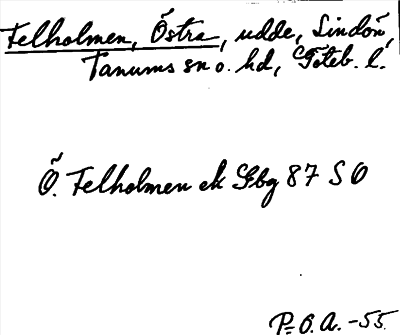 Felholmen, Östra, udde, Lindön,
Tanums sn o. hd, Göteb. l.
Ö. Felholmen ek Gbg 87 SO
P.-O. A. -55.